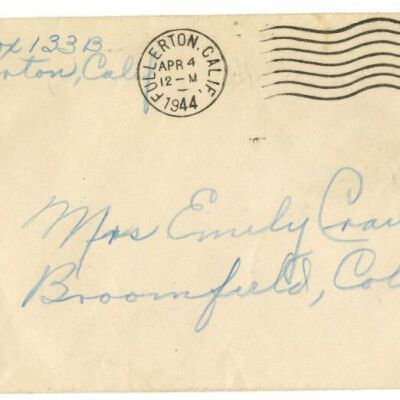 ox 133B
erton, Calif
FULLERTON, CALIF.
APR 4
12-M
1944
Mrs Emily Craw
Broomfield, Col